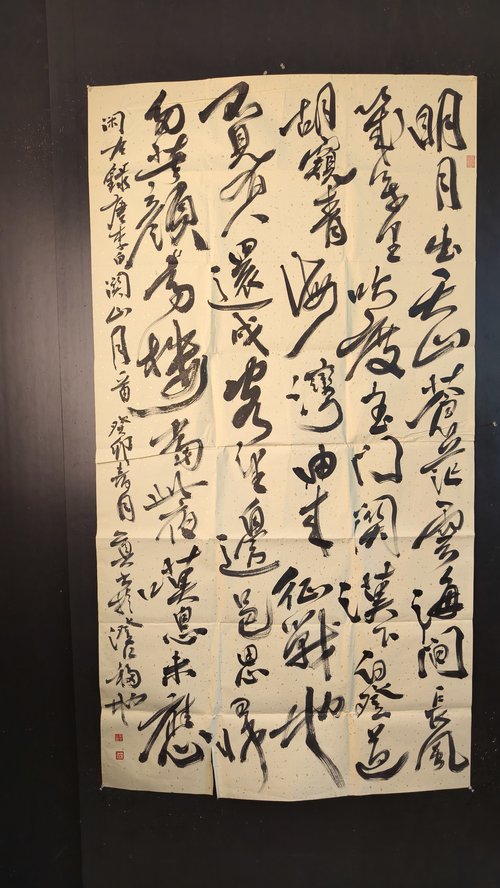 明月出天山蒼茫雲海間長風
幾萬里吹度玉门関漢下白登道
胡窺青海灣由来征戰地
不見有人還戍客望邊邑思歸
多苦顔高樓當此夜嘆息未應
闲右錄唐李白関山月一首癸卯春月